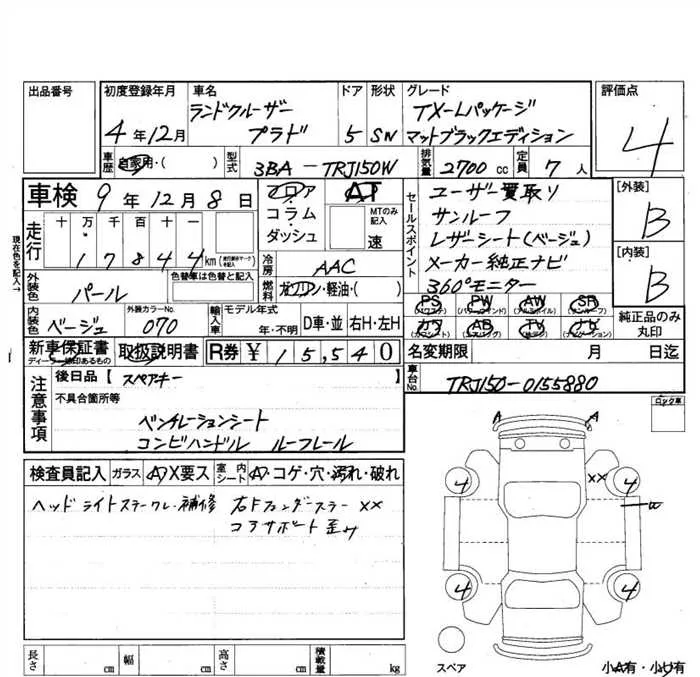 出品番号
初度登録年月
4年12月
車名
ランドクルーザー
プラド
ドア
5
形状
SN
グレード
TX-Lパッケージ
マットブラックエディション
評価点
4
車歴
自家用・( )
型式
3BA-TRJ150W
排気量
2700cc
定員
7人
車検 9年12月8日
現在色を記入→
走行
十万千百十一
17844km
フロア
コラム・
ダッシュ
AT
MTのみ記入
速
セールスポイント
ユーザー買取り
サンルーフ
レザーシート(ベージュ)
メーカー純正ナビ
360°モニター
[外装]
B
[内装]
B
外装色
パール
色替車は色替と記入
冷房
AAC
燃料
ガソリン・軽油・( )
PS PW AW SR
カワ AB TV ナビ
純正品のみ
丸印
内装色
ベージュ
外装カラーNo.
070
輸入車
モデル年式
年・不明
D車・並
右H・左H
新車保証書
ディーラー捺印あるもの
取扱説明書
R券
¥15,540
名変期限 月 日迄
車台No.
TRJ150-0155880
ロック車
注意事項
後日品【スペアキー】
不具合箇所等
ベンチレーションシート
コンビハンドル ルーフレール
検査員記入
ガラス
A X要ス
室内シート
A・コゲ・穴・汚れ・破れ
ヘッドライトステークレ・補修 右Fフェンダーステー XX
コアサポート歪み
A A
XX
4 4
4 4
スペア
長さ cm
幅 cm
高さ cm
積載量 kg
小A有・小U有